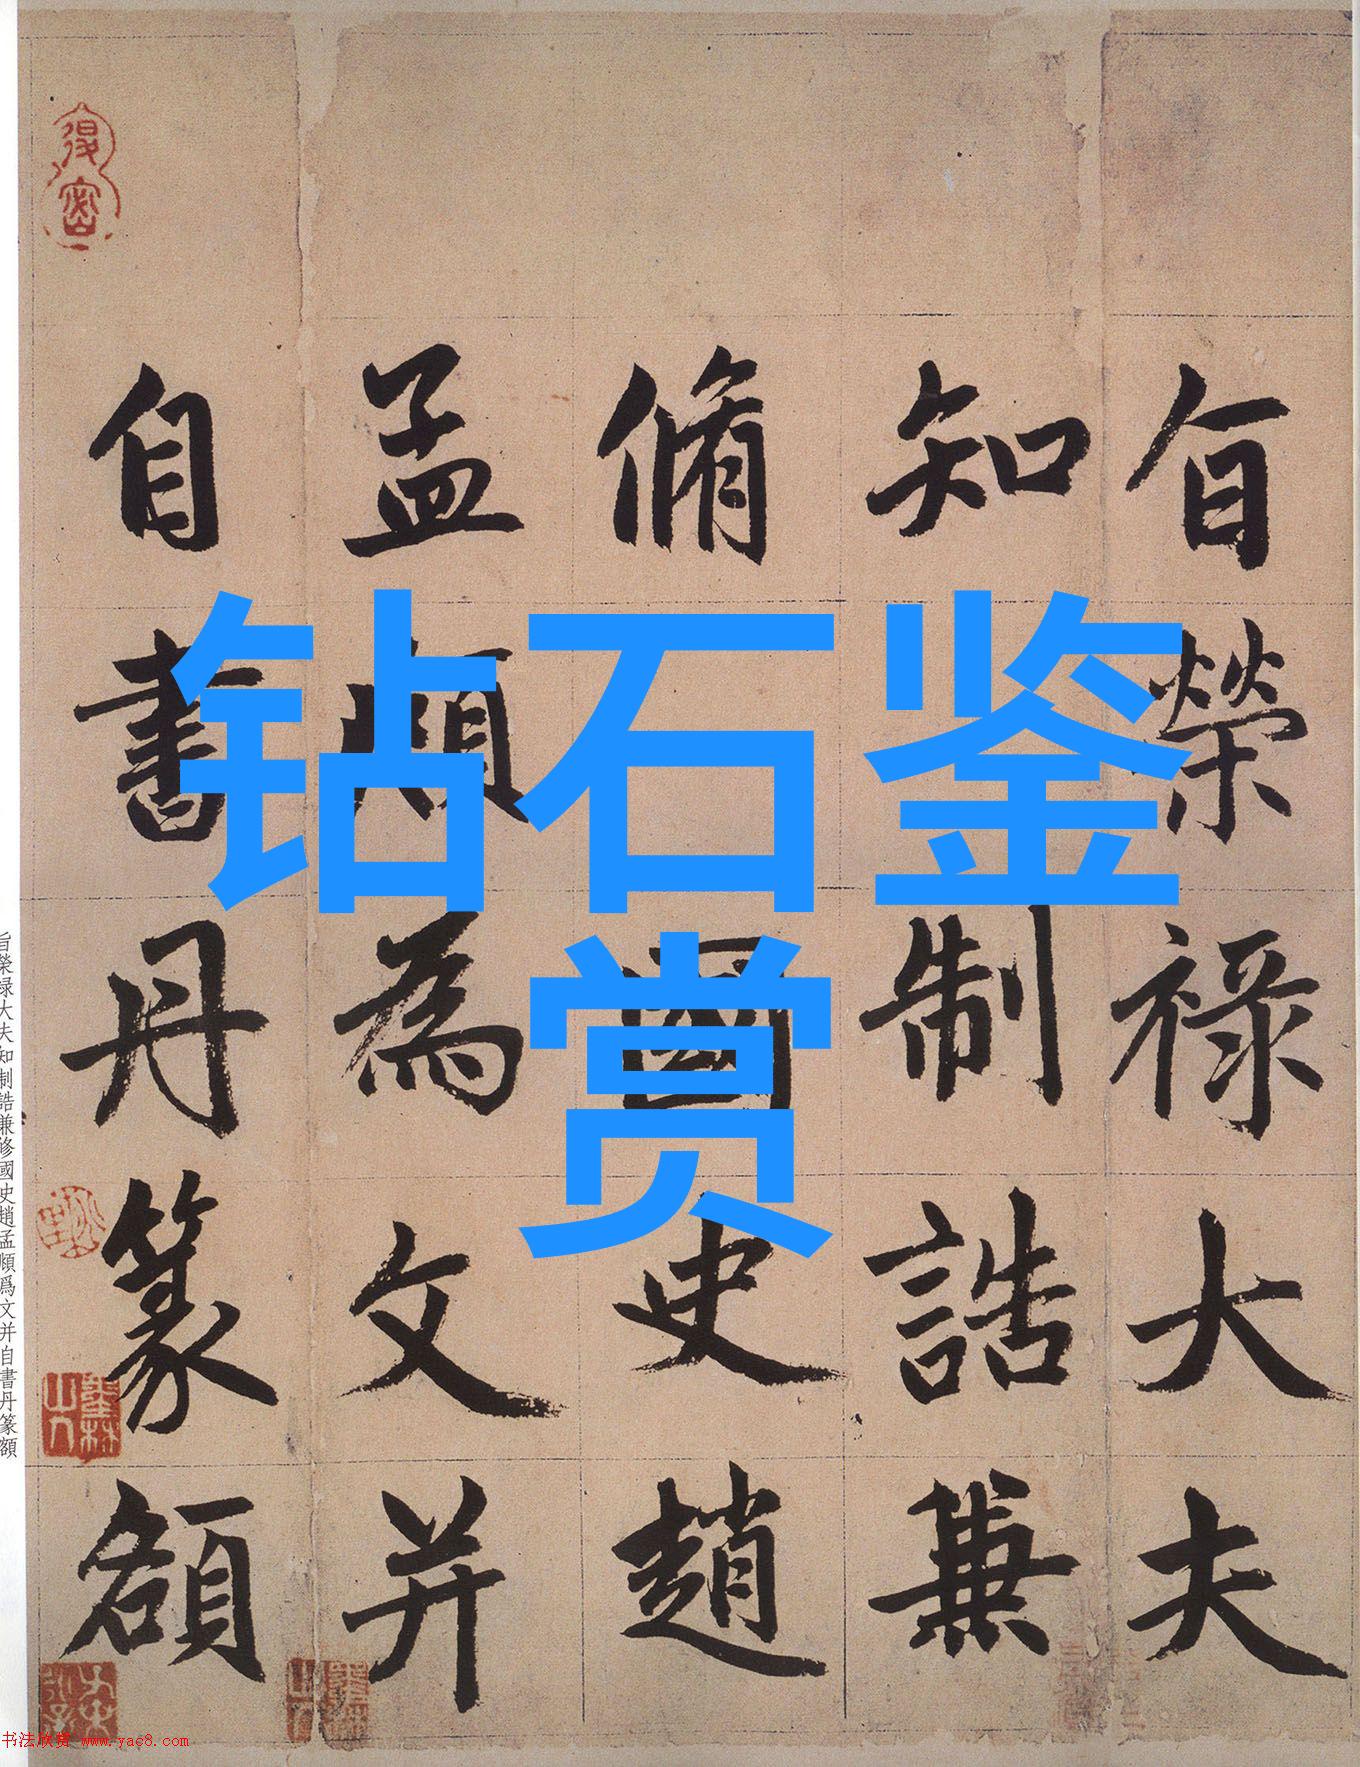 旨榮祿大夫
知制誥兼
脩國史趙
孟頫為文并
自書丹篆額
钻石鉴
赏
旨榮禄大夫知制誥兼修國史趙孟頫爲文并自書丹篆額
书法欣赏 www.yac8.com